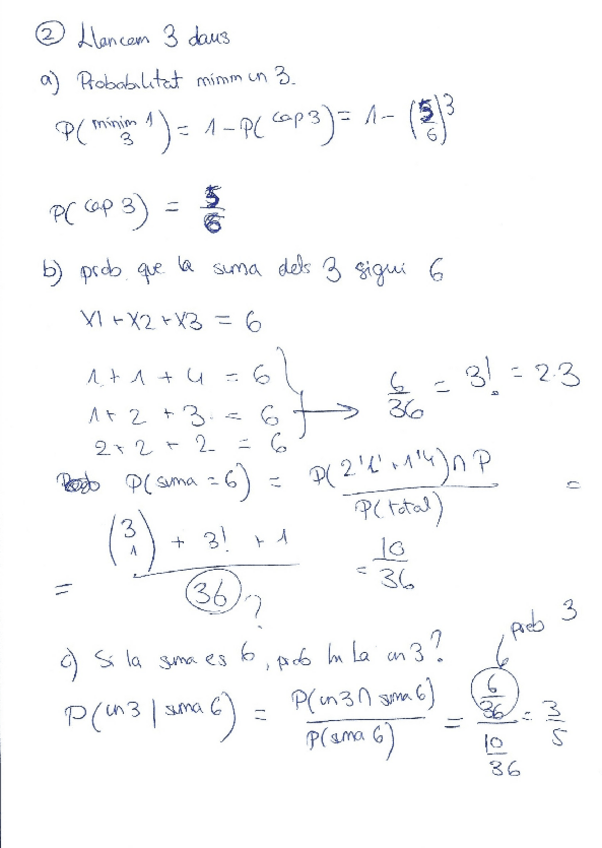 ② Llancem 3 daus
a) Probabilitat mínim un 3.
P(mínim 1 3) = 1 - P(cap 3) = 1 - (5/6)^3
P(cap 3) = 5/6
b) prob. que la suma dels 3 sigui 6
X1 + X2 + X3 = 6
1 + 1 + 4 = 6
1 + 2 + 3 = 6 → 6/36 = 3! = 2·3
2 + 2 + 2 = 6
P(suma = 6) = P(2'1' + 1'4) ∩ P / P(total) =
= (3 1) + 3! + 1 / 36 ? = 10/36
prob 3
c) Si la suma es 6, prob hi ha un 3?
P(un 3 | suma 6) = P(un 3 ∩ suma 6) / P(suma 6) = 6/36 / 10/36 = 3/5